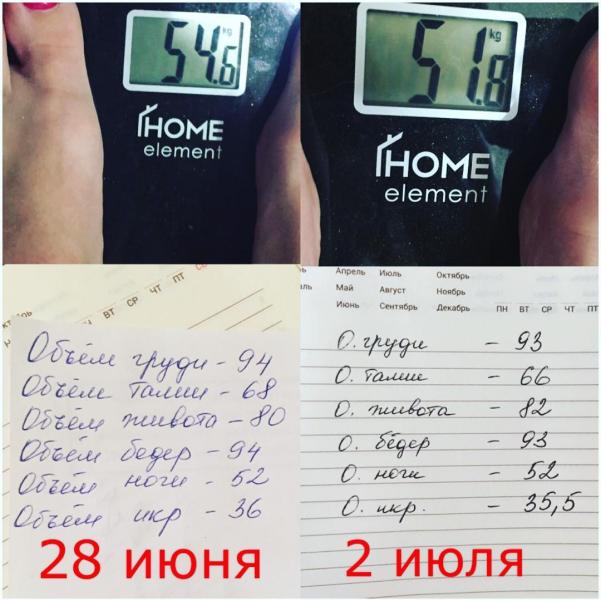 54.6 kg
HOME
element
51.8 kg
HOME
element
ПН ВТ СР ЧТ ПТ
Объём груди - 94
Объём талии - 68
Объём живота - 80
Объём бедер - 94
Объём ноги - 52
Объём икр - 36
28 июня
Апрель Июль Октябрь
Май Август Ноябрь
Июнь Сентябрь Декабрь ПН ВТ СР ЧТ ПТ
О. груди - 93
О. талии - 66
О. живота - 82
О. бёдер - 93
О. ноги - 52
О. икр. - 35,5
2 июля